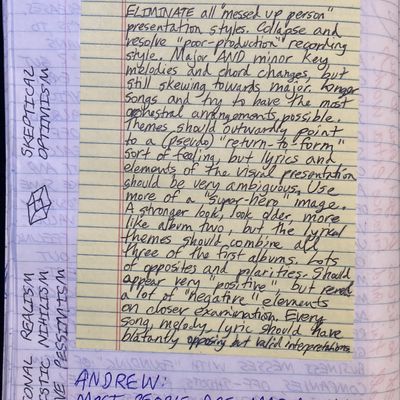 ELIMINATE all "messed up person"
presentation styles. Collapse and
resolve "poor-production" recording
style. Major AND minor key
melodies and chord changes, but
still skewing towards major. Longer
songs and try to have the most
orchestral arrangements possible.
Themes should outwardly point
to a (pseudo) "return-to form"
sort of feeling, but lyrics and
elements of the visual presentation
should be very ambiguous. Use
more of a "super-hero" image.
A stronger look, look older, more
like album two, but the lyrical
themes should combine all
three of the first albums. Lots
of opposites and polarities. Should
appear very "positive", but reveal
a lot of "negative" elements
on closer examination. Every
song, melody, lyric should have
blatantly opposing but valid interpretations.
SKEPTICAL
OPTIMISM
REALISM
NIHILISM
PESSIMISM
ANDREW:
MOST PEOPLE ARE